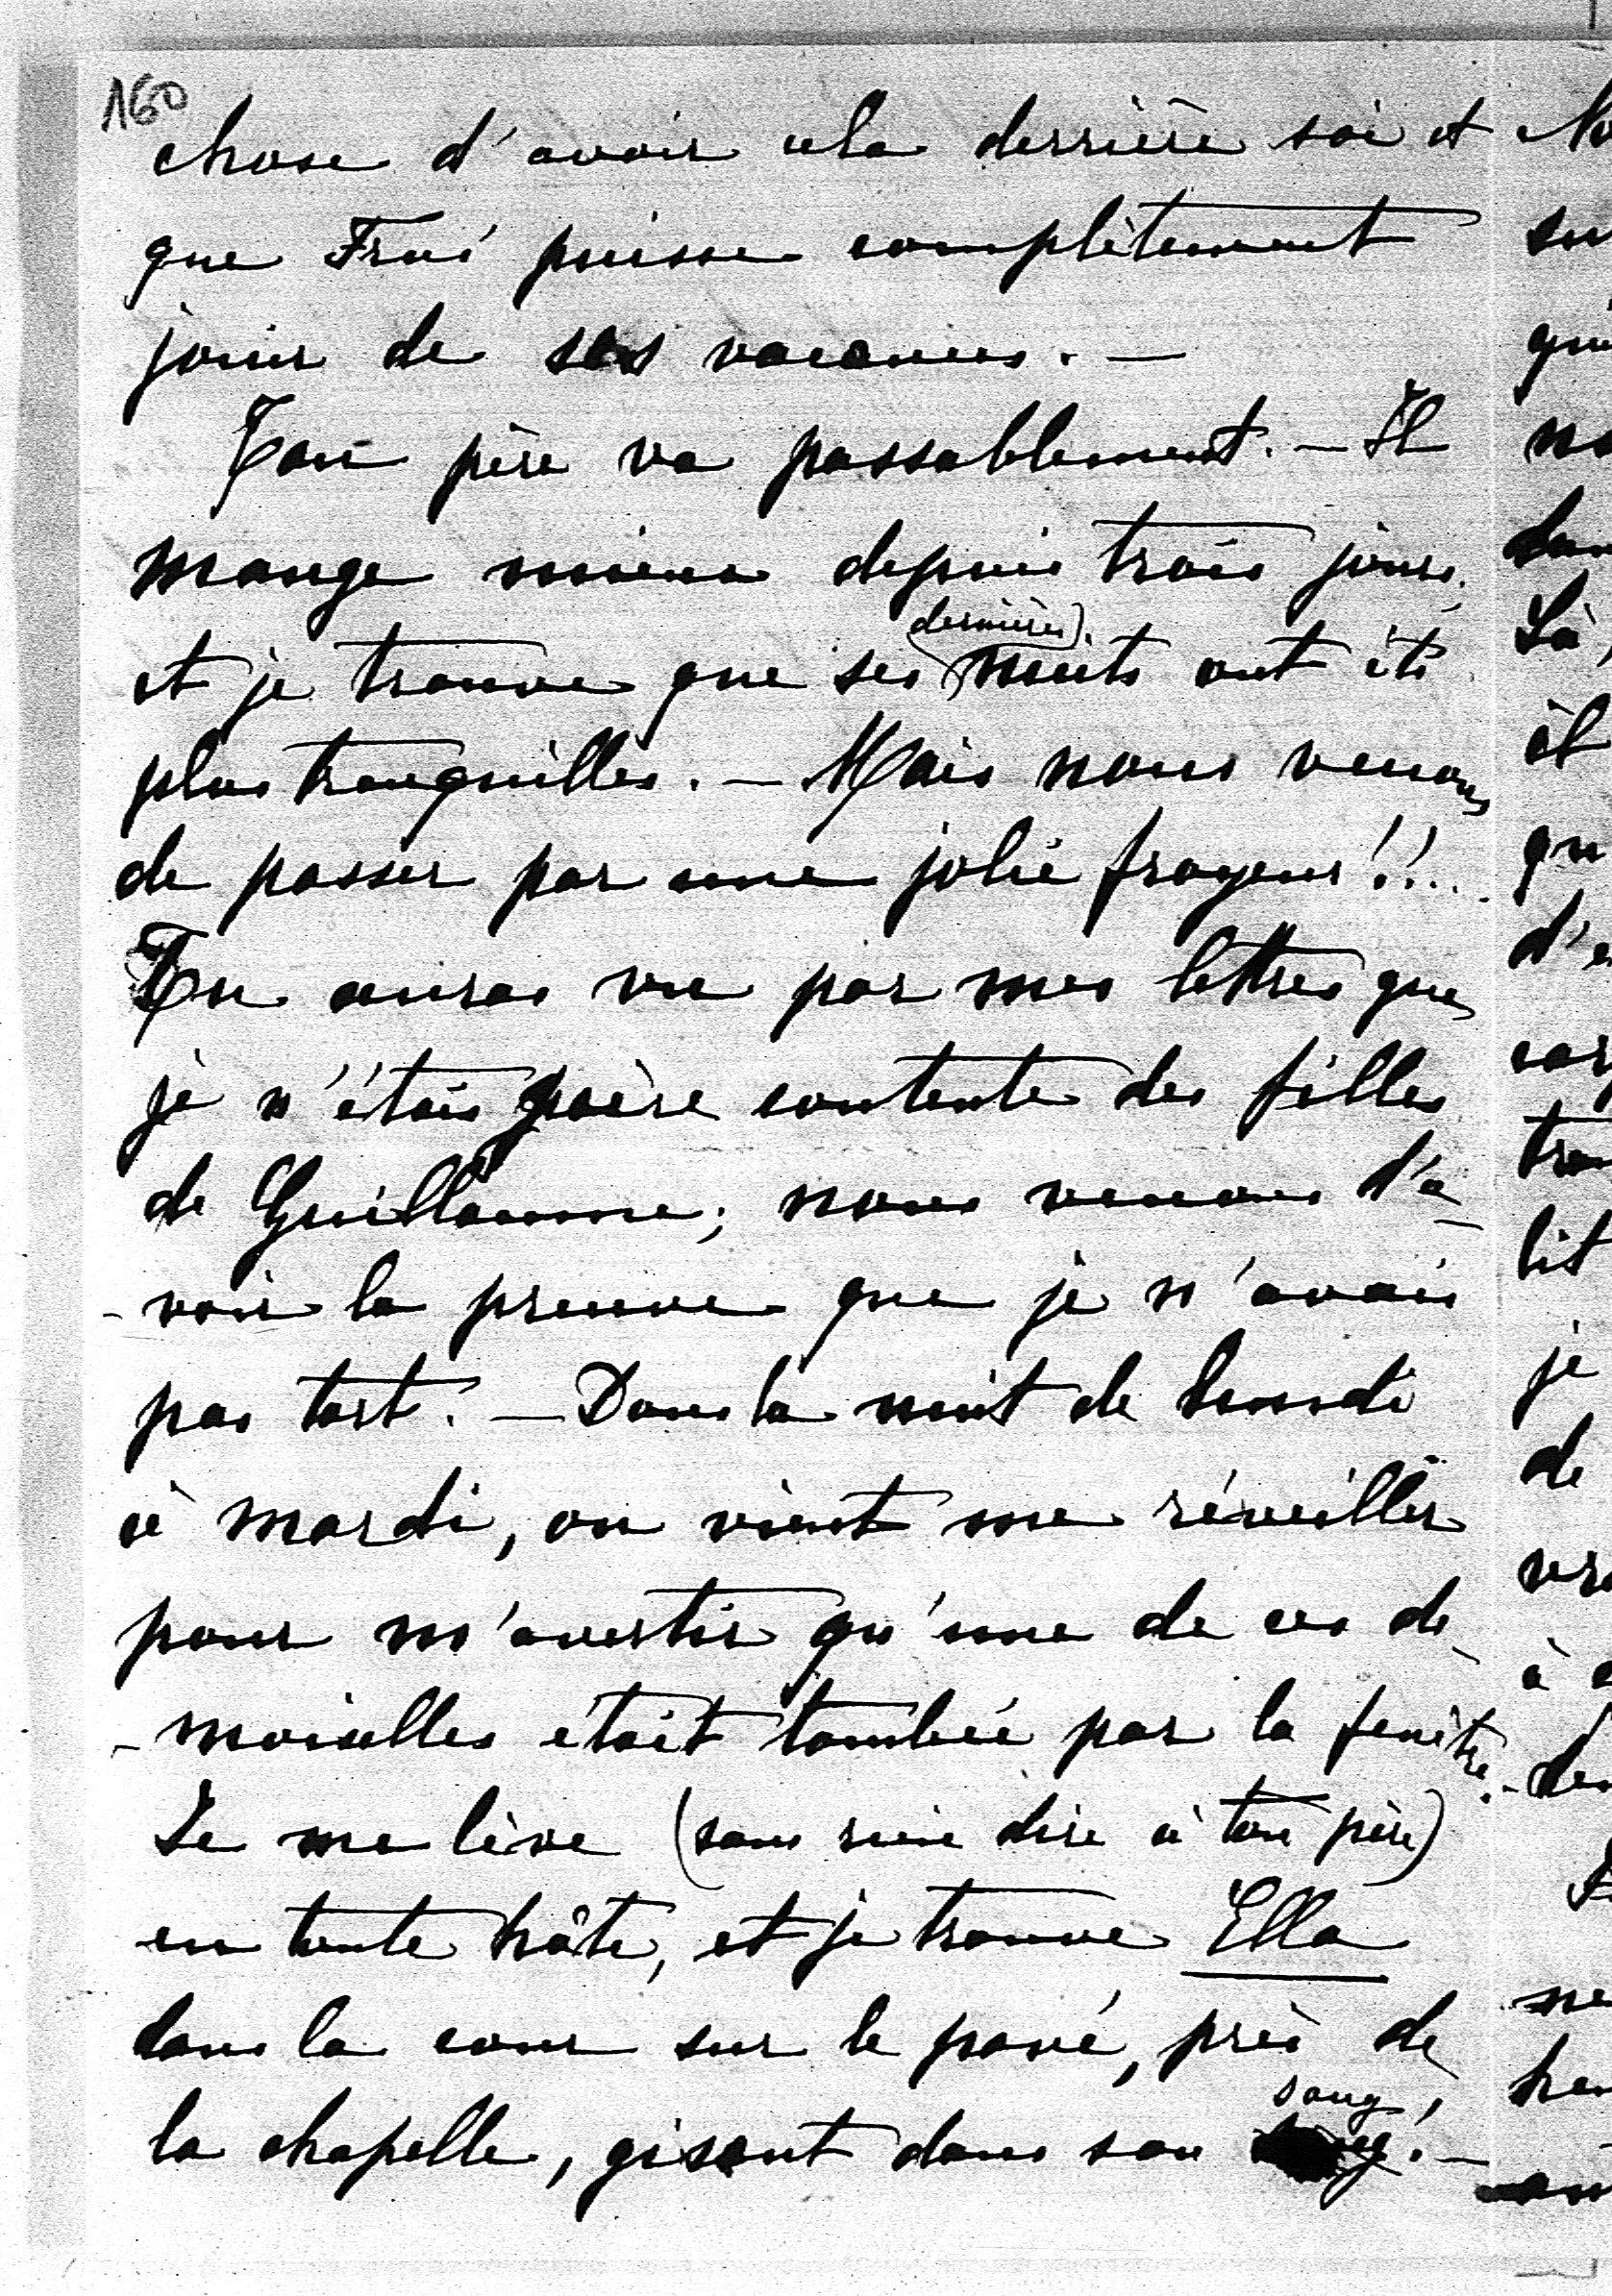 160
chose d'avoir cela derrière soi et
que puisse complètement
jouir de ses vacances. —
Ton père va passablement. — Il
mange mieux depuis trois jours,
et je trouve que ses (dernières) nuits ont été
plus tranquilles. — Mais nous venons
de passer par une jolie frayeur!!..
Tu auras vu par mes lettres que
je n'étais guère contente des filles
de Guillaume; nous venons d'a-
-voir la preuve que je n'avais
pas tort. — Dans la nuit de Lundi
à mardi, on vient me réveiller
pour m'avertir qu'une de ces de-
-moiselles était tombée par la fenêtre. -
Je me lève (sans rien dire à ton père)
en toute hâte, et je trouve Ella
dans la cour sur le pavé, près de
la chapelle, gisant dans son sang! —